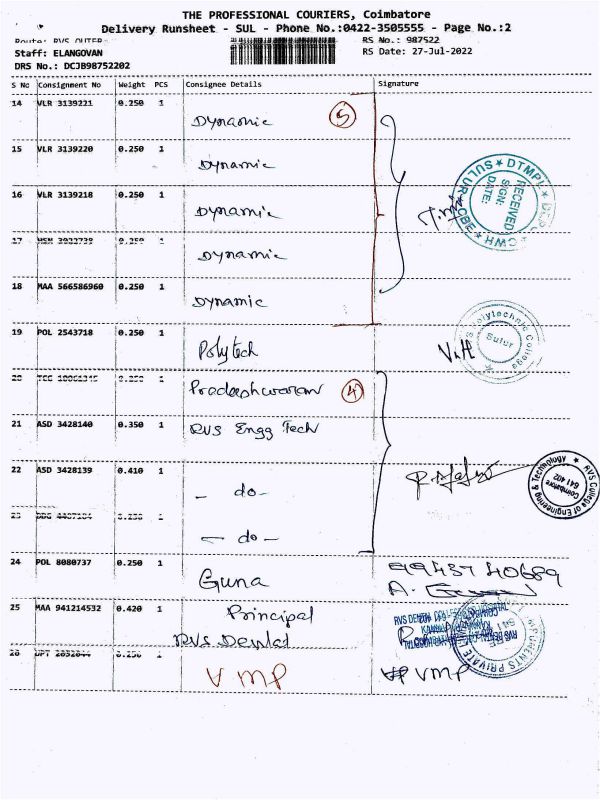 THE PROFESSIONAL COURIERS, Coimbatore
Delivery Runsheet - SUL - Phone No.:0422-3505555 - Page No.:2
Route: RVS OUTER
RS No.: 987522
Staff: ELANGOVAN
RS Date: 27-Jul-2022
DRS No.: DCJB98752202
S No Consignment No Weight PCS Consignee Details Signature
14 VLR 3139221 0.250 1 Dynamic 5
15 VLR 3139220 0.250 1 Dynamic
16 VLR 3139218 0.250 1 Dynamic
DTMPL SULUR CBE CWH
RECEIVED
SIGN:
DATE:
17 0.250 1 Dynamic
18 MAA 566586960 0.250 1 Dynamic
19 POL 2543718 0.250 1 Polytech
Polytechnic College
Sulur
20 1 Pradeeshwaran 4
21 ASD 3428140 0.350 1 RVS Engg Tech
22 ASD 3428139 0.410 1 - do -
RVS College of Engineering & Technology
Coimbatore
641 402
23 1 - do -
24 POL 8080737 0.250 1 Guna 99437 40689
25 MAA 941214532 0.420 1 Principal
RVS Dental
26 0.250 1 VMP VMP